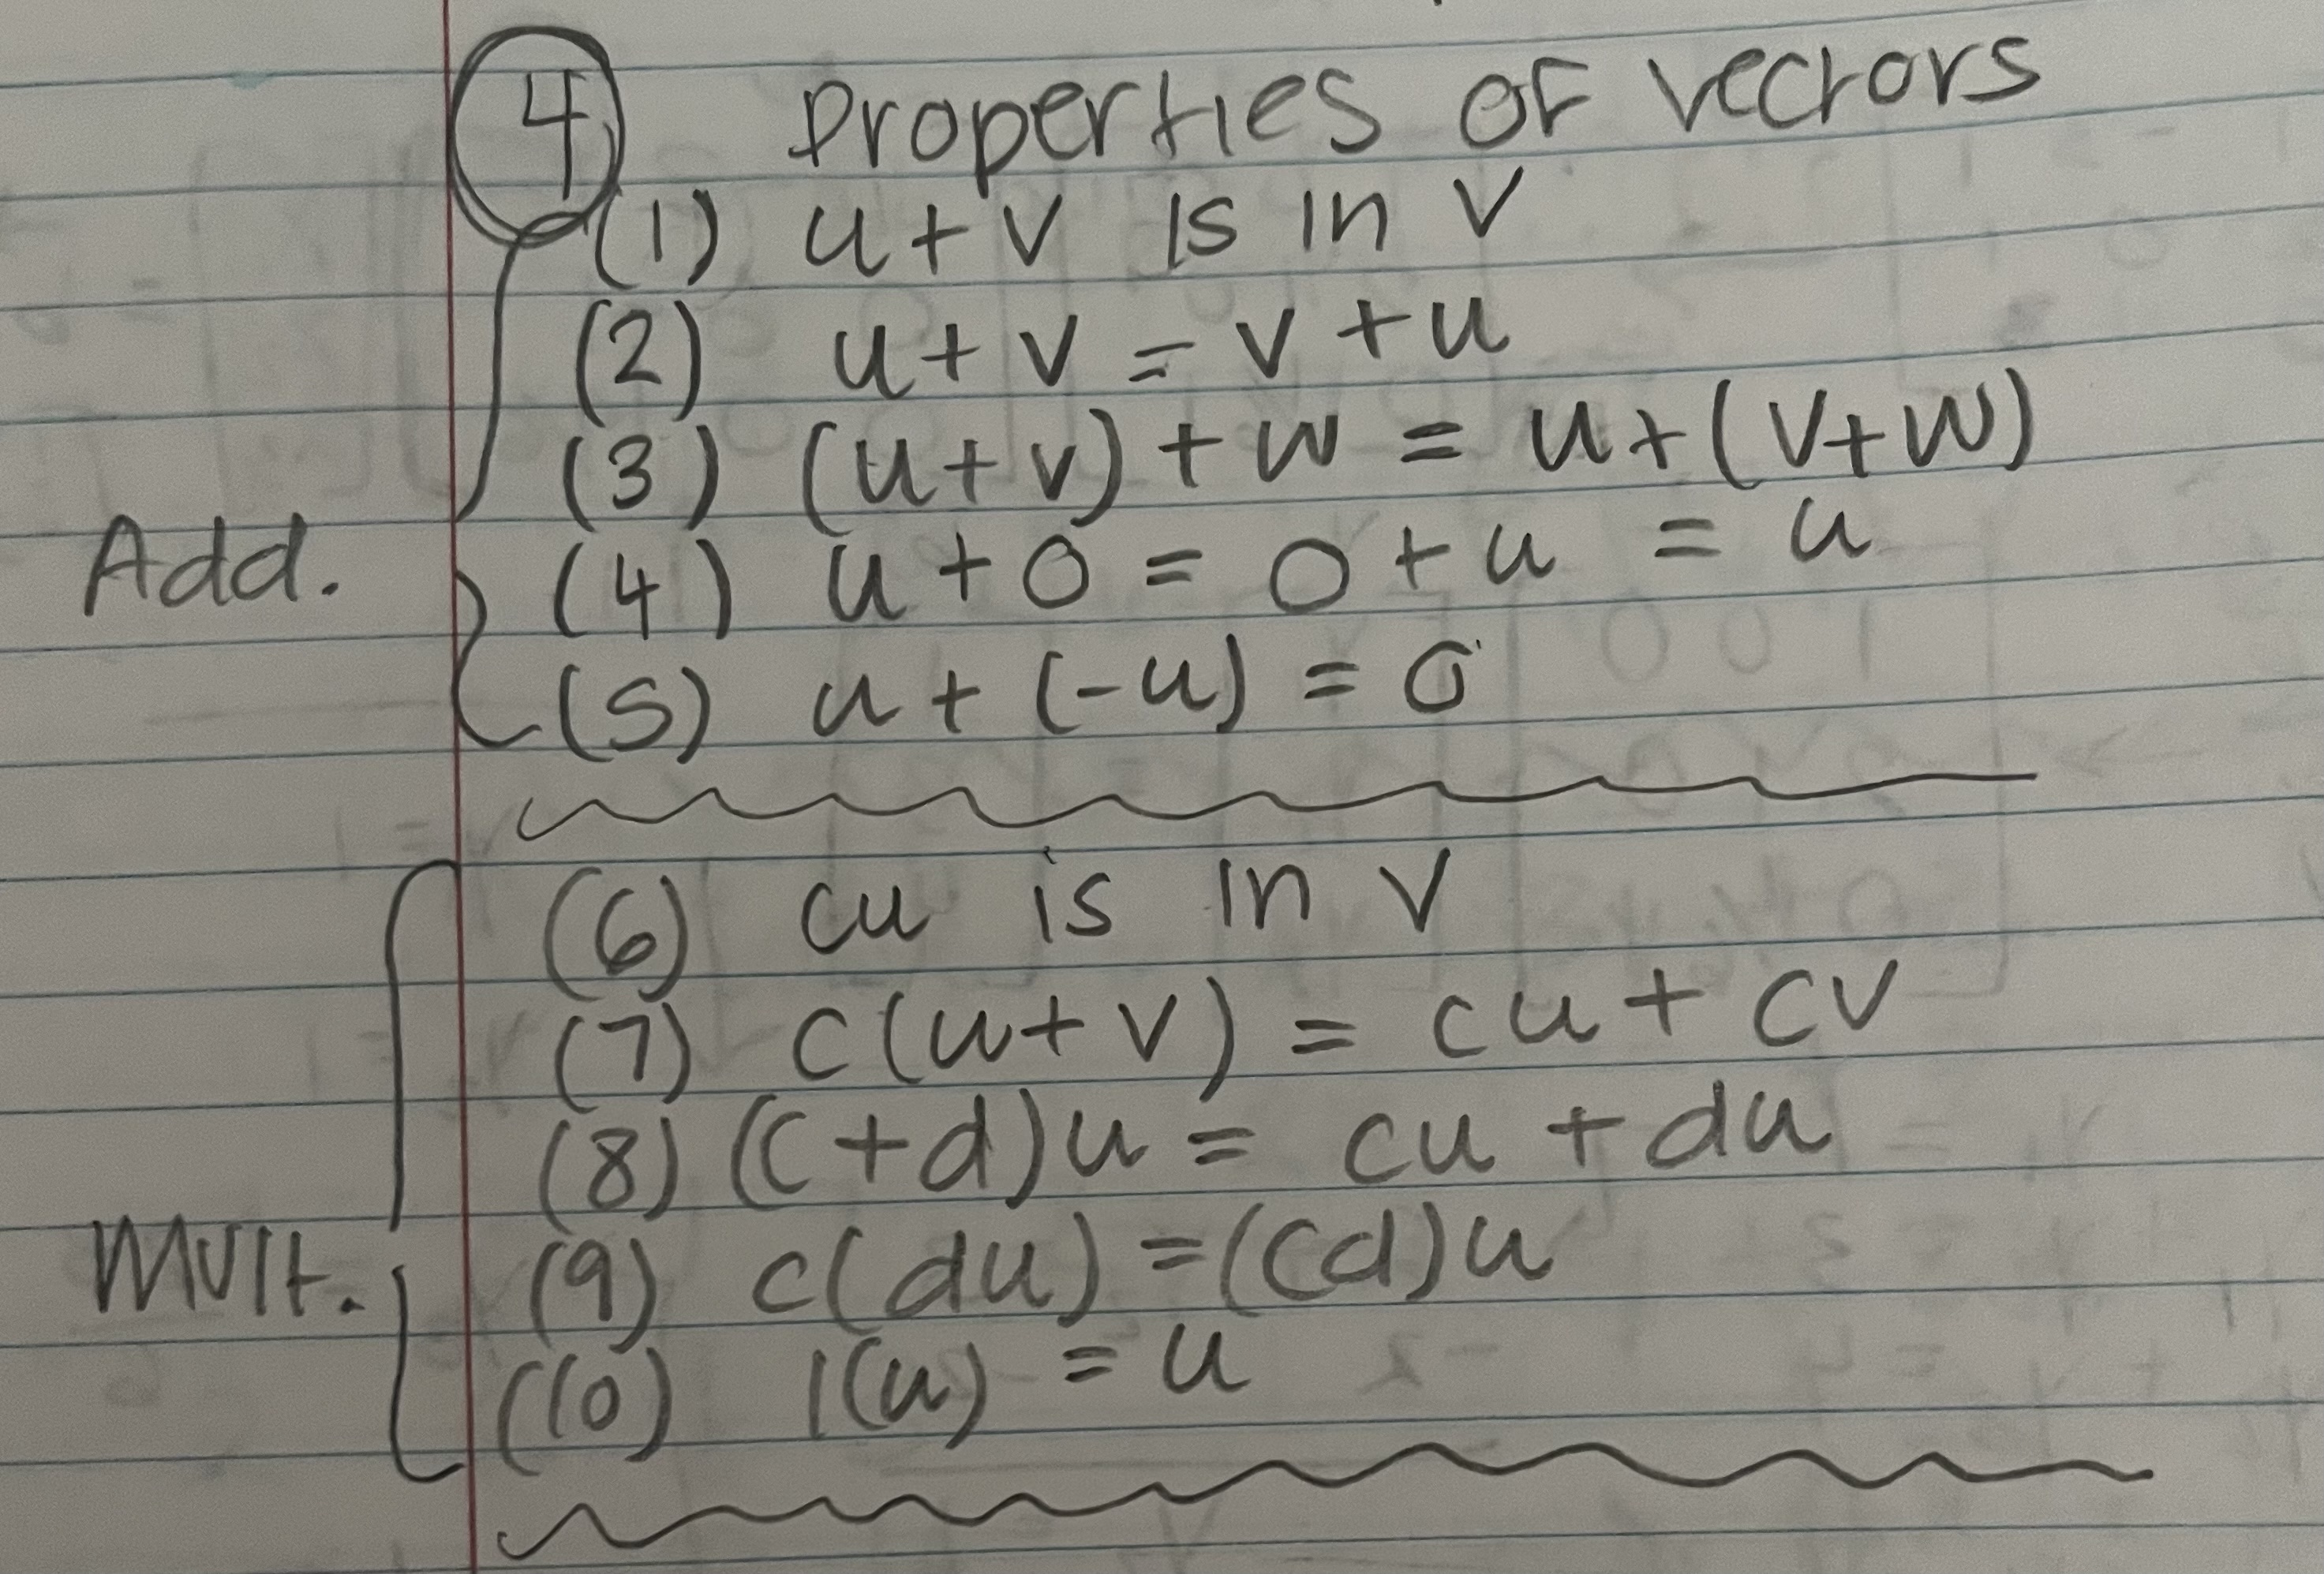 4 Properties of vectors
(1) u + v is in V
(2) u + v = v + u
(3) (u + v) + w = u + (v + w)
Add. (4) u + 0 = 0 + u = u
(5) u + (-u) = 0
(6) cu is in V
(7) c(u + v) = cu + cv
(8) (c + d)u = cu + du
Mult. (9) c(du) = (cd)u
(10) 1(u) = u